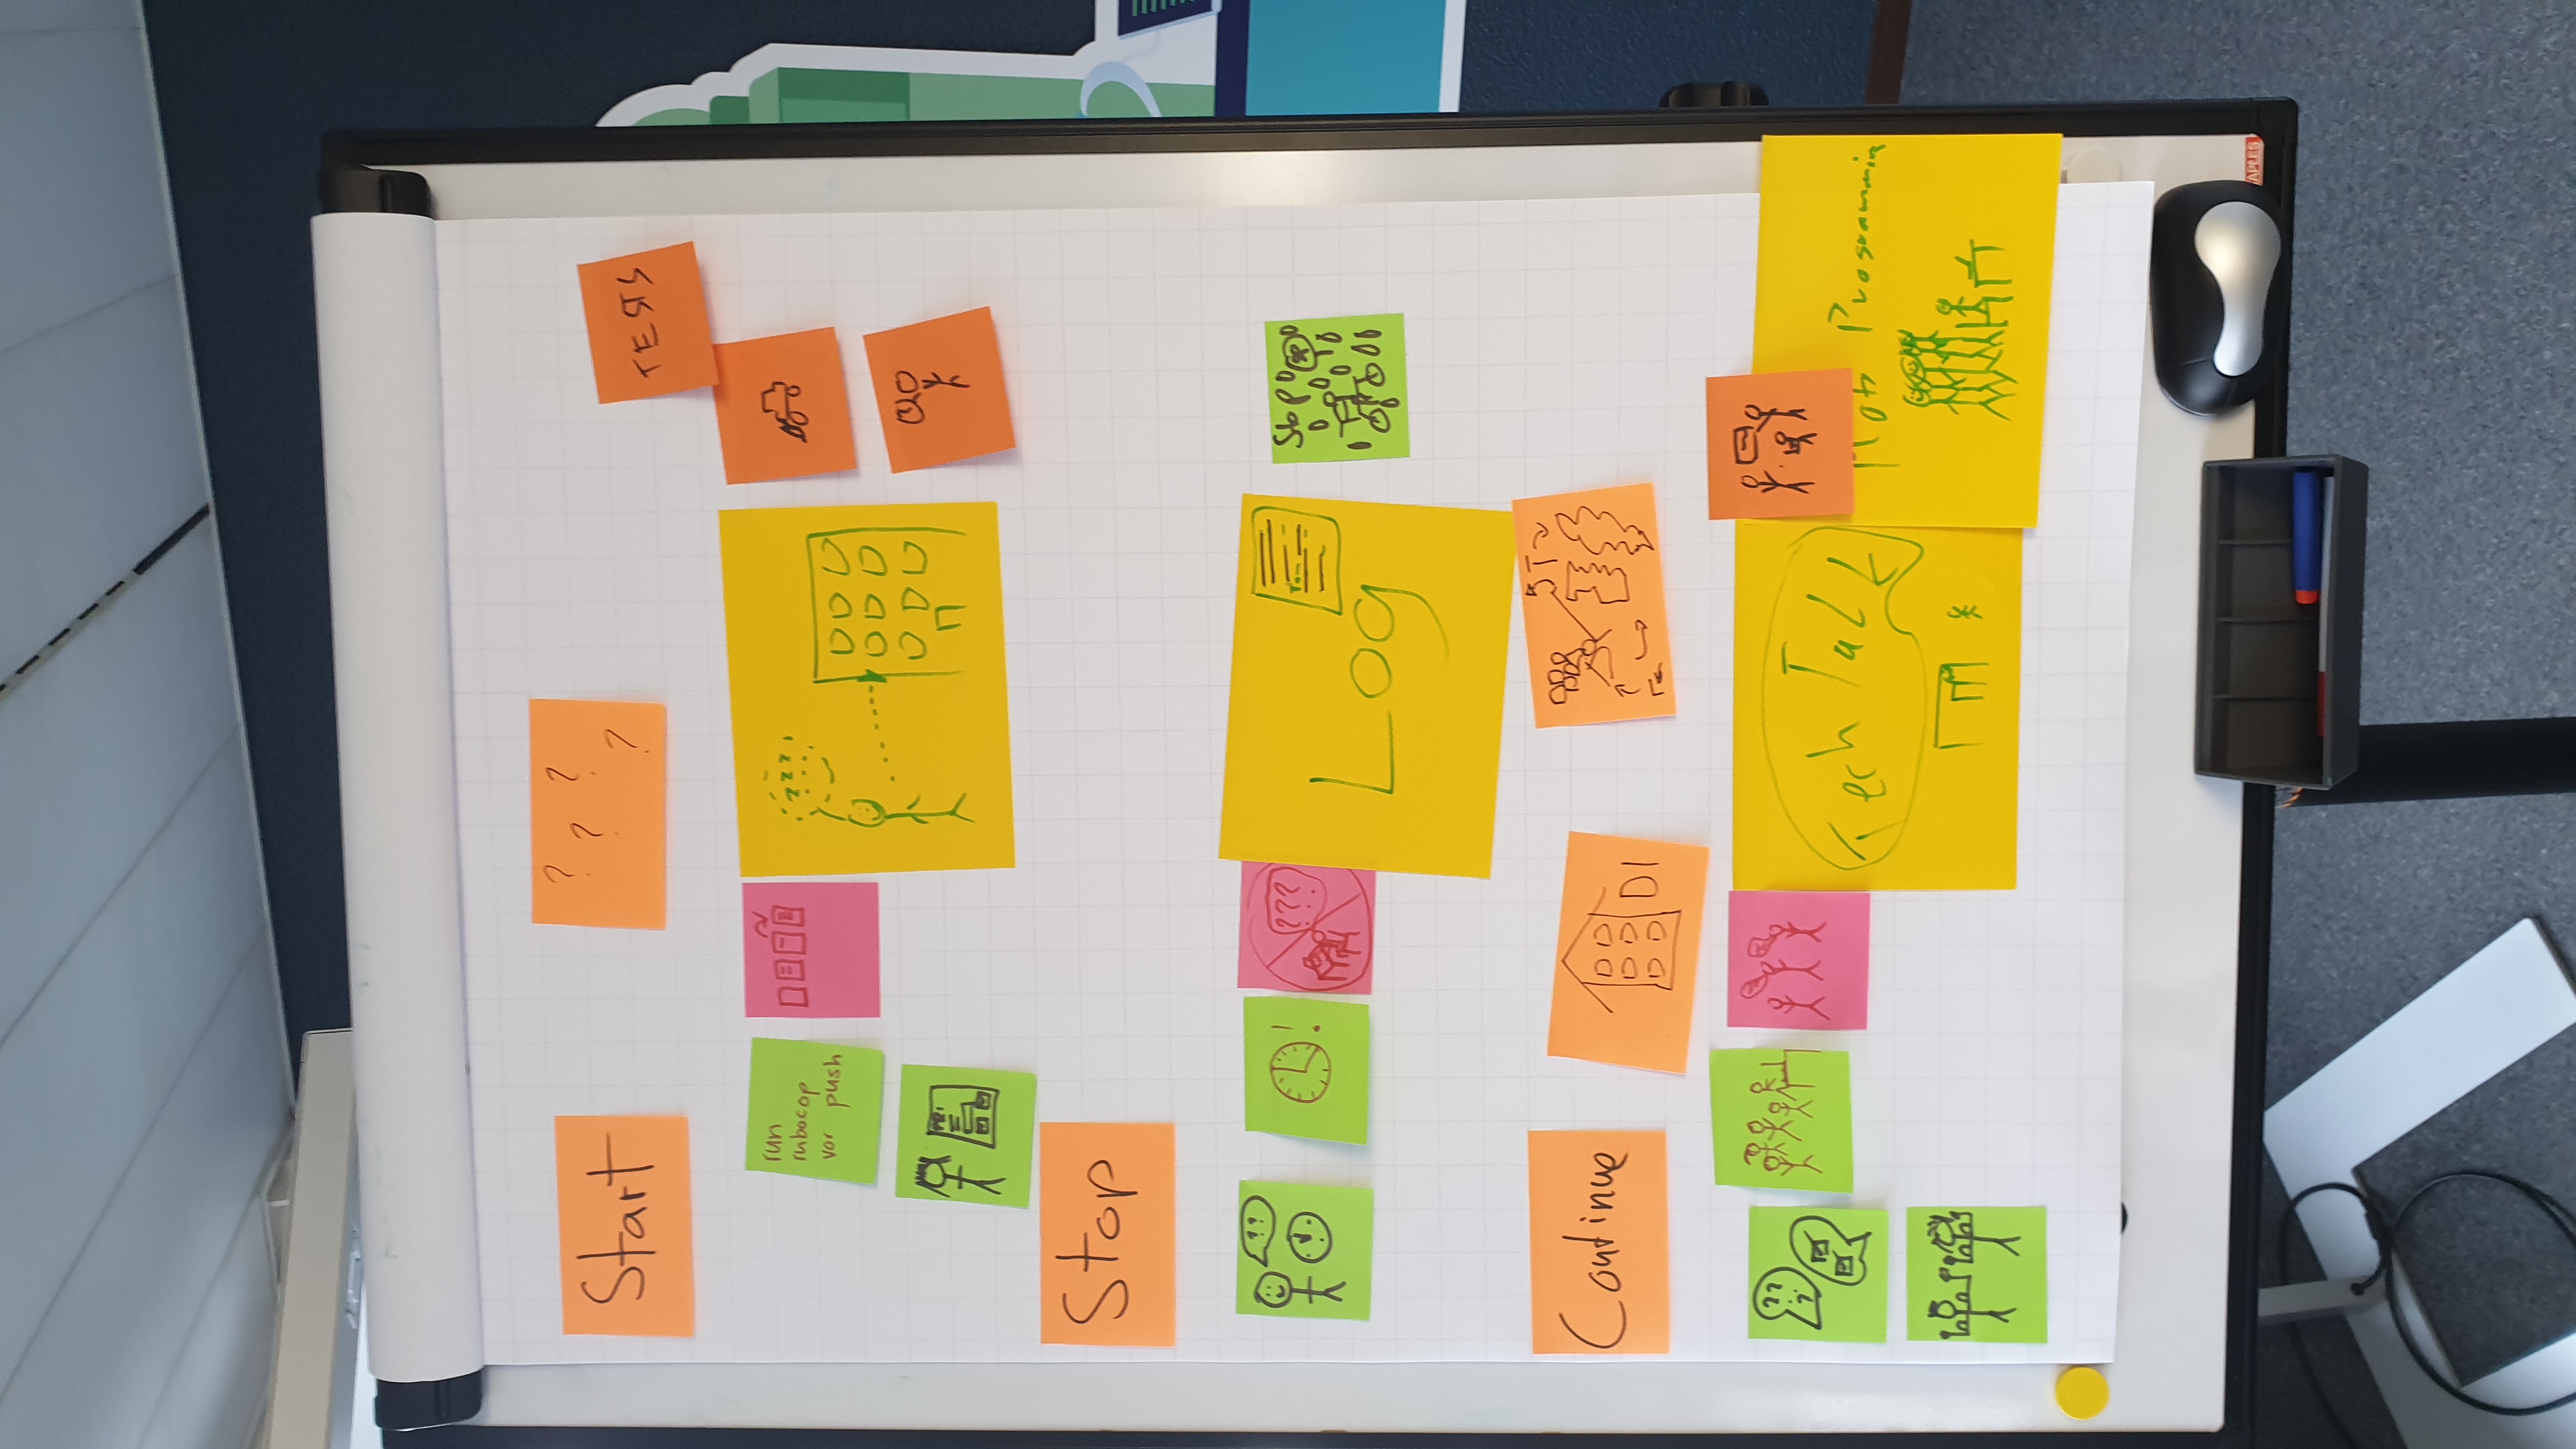 Start
? ? ? ?
TESTS
run
rubocop
vor push
? ? ?
Stop
??
!
???
Log
Stop
Continue
DI
?? ?
Tech Talk
Mob Programming
APLES